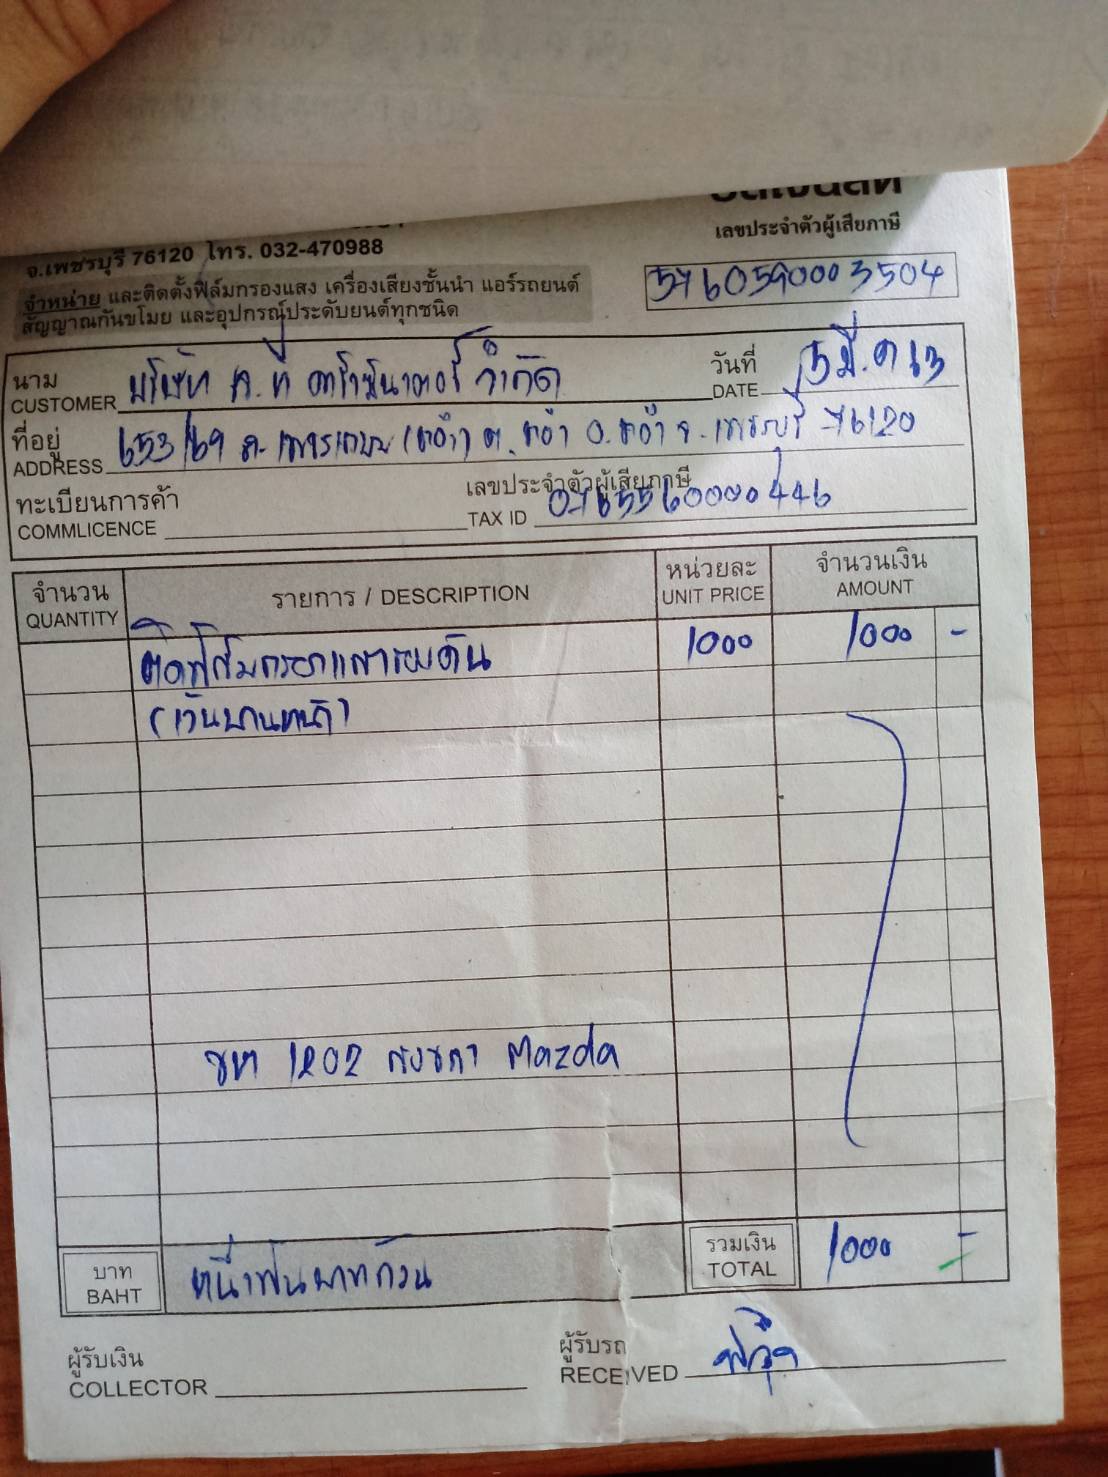 เลขประจำตัวผู้เสียภาษี
จ.เพชรบุรี 76120 โทร. 032-470988
5760590003504
จำหน่าย และติดตั้งฟิล์มกรองแสง เครื่องเสียงชั้นนำ แอร์รถยนต์
สัญญาณกันขโมย และอุปกรณ์ประดับยนต์ทุกชนิด
นาม บริษัท ค.ที จำกัด วันที่ 5 มี.ค 63
CUSTOMER DATE
ที่อยู่ 653/69 ถ. เพชรเกษม (ชะอำ) ต.ชะอำ อ.ชะอำ จ.เพชรบุรี 76120
ADDRESS
ทะเบียนการค้า เลขประจำตัวผู้เสียภาษี 0765560000446
COMMLICENCE TAX ID
จำนวน รายการ / DESCRIPTION หน่วยละ จำนวนเงิน
QUANTITY UNIT PRICE AMOUNT
ติดฟิล์มกรองแสงรอบคัน 1000 1000 -
(เว้นบานหน้า)
1202 สงขลา Mazda
บาท หนึ่งพันบาทถ้วน รวมเงิน 1000 -
BAHT TOTAL
ผู้รับเงิน ผู้รับรถ
COLLECTOR RECEIVED